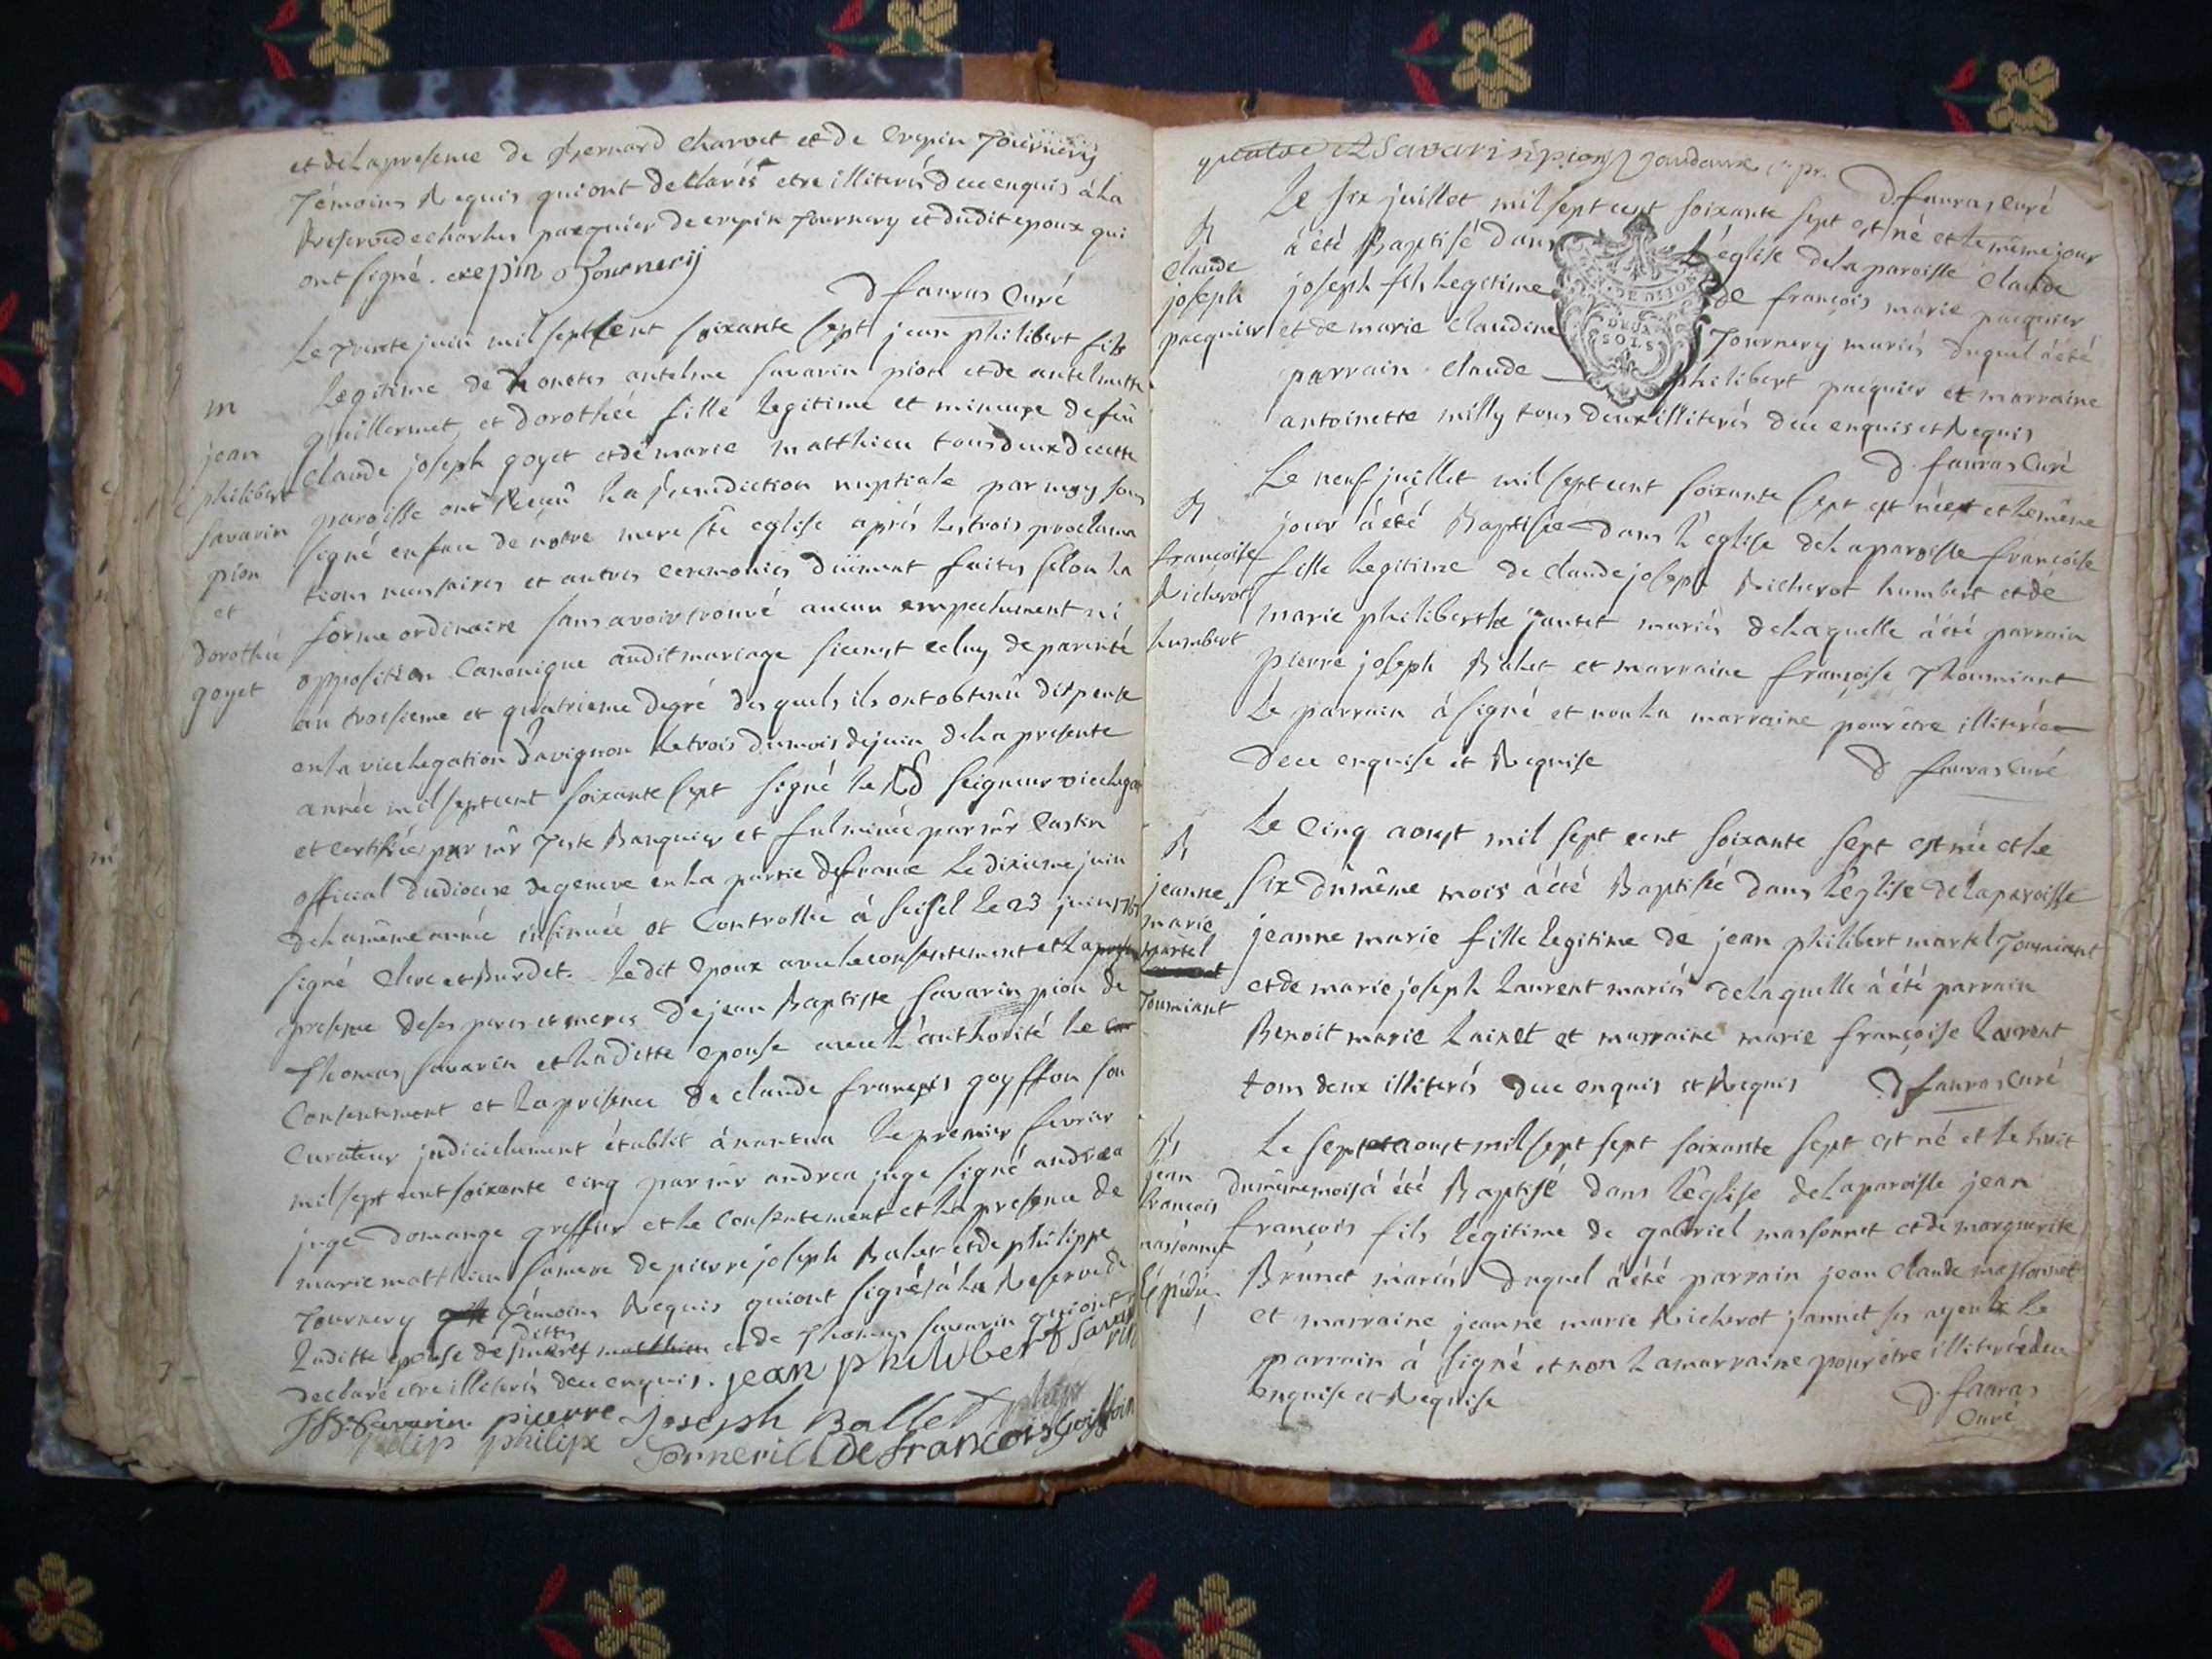 et de la presense de Bernard charvet et de Crepin Tournery
Témoins Requis qui ont declarés etre illiterés de ce enquis à la
Reserve de charles pacquier de crepin Tournery et dudit epoux qui
ont signé. crepin Tournerij
D fauras Curé
Le Trente juin mil sept cent soixante sept jean philibert fils
Legitime de honetes antelme Savarin pion et de antelmette
guillermet et dorothée fille legitime et mineure de feû
Claude joseph goyet et de marie matthieu tous deux de cette
paroisse ont Reçeû la Benediction nuptiale par moy sous
signé en face de nôtre mere ste eglise aprés les trois proclama
tions necessaires et autres ceremonies düement faites selon la
forme ordinaire sans avoir trouvé aucun empechement ni
opposition Canonique audit mariage si ce n'est celuy de parenté
au troisieme et quatrieme degré desquels ils ont obtenû dispense
en la vicelegation d'avignon le trois du mois de juin de la presente
année mil sept cent soixante sept signé le Seigneur vicelegat
et certifiée par mr Teste Banquier et fulminée par mr Castin
official du diocese de geneve en la partie de france le dixieme juin
de la même année insinuée et Controllée à Seissel le 23 juin 1767
signé Clerc et Burdet. Ledit Epoux avec le consentement et la
presense de ses peres et meres de jean Baptiste Savarin pion de
Thomas Savarin et la ditte epouse avec l'authorité le
Consentement et la presence de claude françois goyffon son
Curateur judicielement établit à nantua le premier fevrier
mil sept cent soixante cinq par mr andrea juge signé andrea
juge domange greffier et le Consentement et la presence de
marie matthieu sa mere de pierre joseph Balet et de philippe
Tournery Témoins Requis qui ont signés à la Reserve de
ladite epouse desdittes meres et de Thomas Savarin qui ont
declaré etre illiterés de ce enquis. jean philibert Savarin
JB Savarin. pierre Joseph Ballet
philip philipe Torneri Clde francois Goiffon
m
jean
philibert
Savarin
pion
et
dorothée
goyet
Savarin pion
D fauras Curé
Le Six juillet mil sept cent soixante sept est né et le même jour
à été Baptisé dans L'église de la paroisse Claude
joseph fils legitime de françois marie pacquier
et de marie Claudine Tournery mariés duquel à été
parrain Claude philibert pacquier et marraine
antoinette milly tous deux illiterés de ce enquis et Requis
D. fauras Curé
B
Claude
joseph
pacquier
GEN. DE DIJON
DEUX
SOLS
Le neuf juillet mil sept cent soixante sept est née et le même
jour à été Baptisée dans l'église de la paroisse françoise
fille legitime de claude joseph Richerot humbert et de
marie philiberthe jantet mariés de laquelle à été parrain
pierre joseph Balet et marraine françoise Thoumiant
Le parrain à signé et non la marraine pour être illiterée
de ce enquise et Requise
D fauras Curé
B
françoise
Richerot
humbert
Le Cinq aoust mil sept cent soixante sept est née et le
six dû même mois à été Baptisée dans l'église de la paroisse
jeanne marie fille legitime de jean philibert martel Toumiant
et de marie joseph Laurent mariés de laquelle à été parrain
Benoit marie Lainet et marraine marie françoise Laurent
tous deux illiterés de ce enquis et Requis D. fauras Curé
B
jeanne
marie
martel
Toumiant
Le sept aoust mil sept sept soixante sept est né et le huit
du même mois à été Baptisé dans l'église de la paroisse jean
françois fils legitime de gabriel massonnet et de marguerite
Brunet mariés duquel à été parrain jean Claude massonnet
et marraine jeanne marie Richerot jannet ses ayeulx le
parrain à signé et non la marraine pour être illiterée de ce
enquise et Requise
D. fauras
Curé
B
jean
françois
massonnet